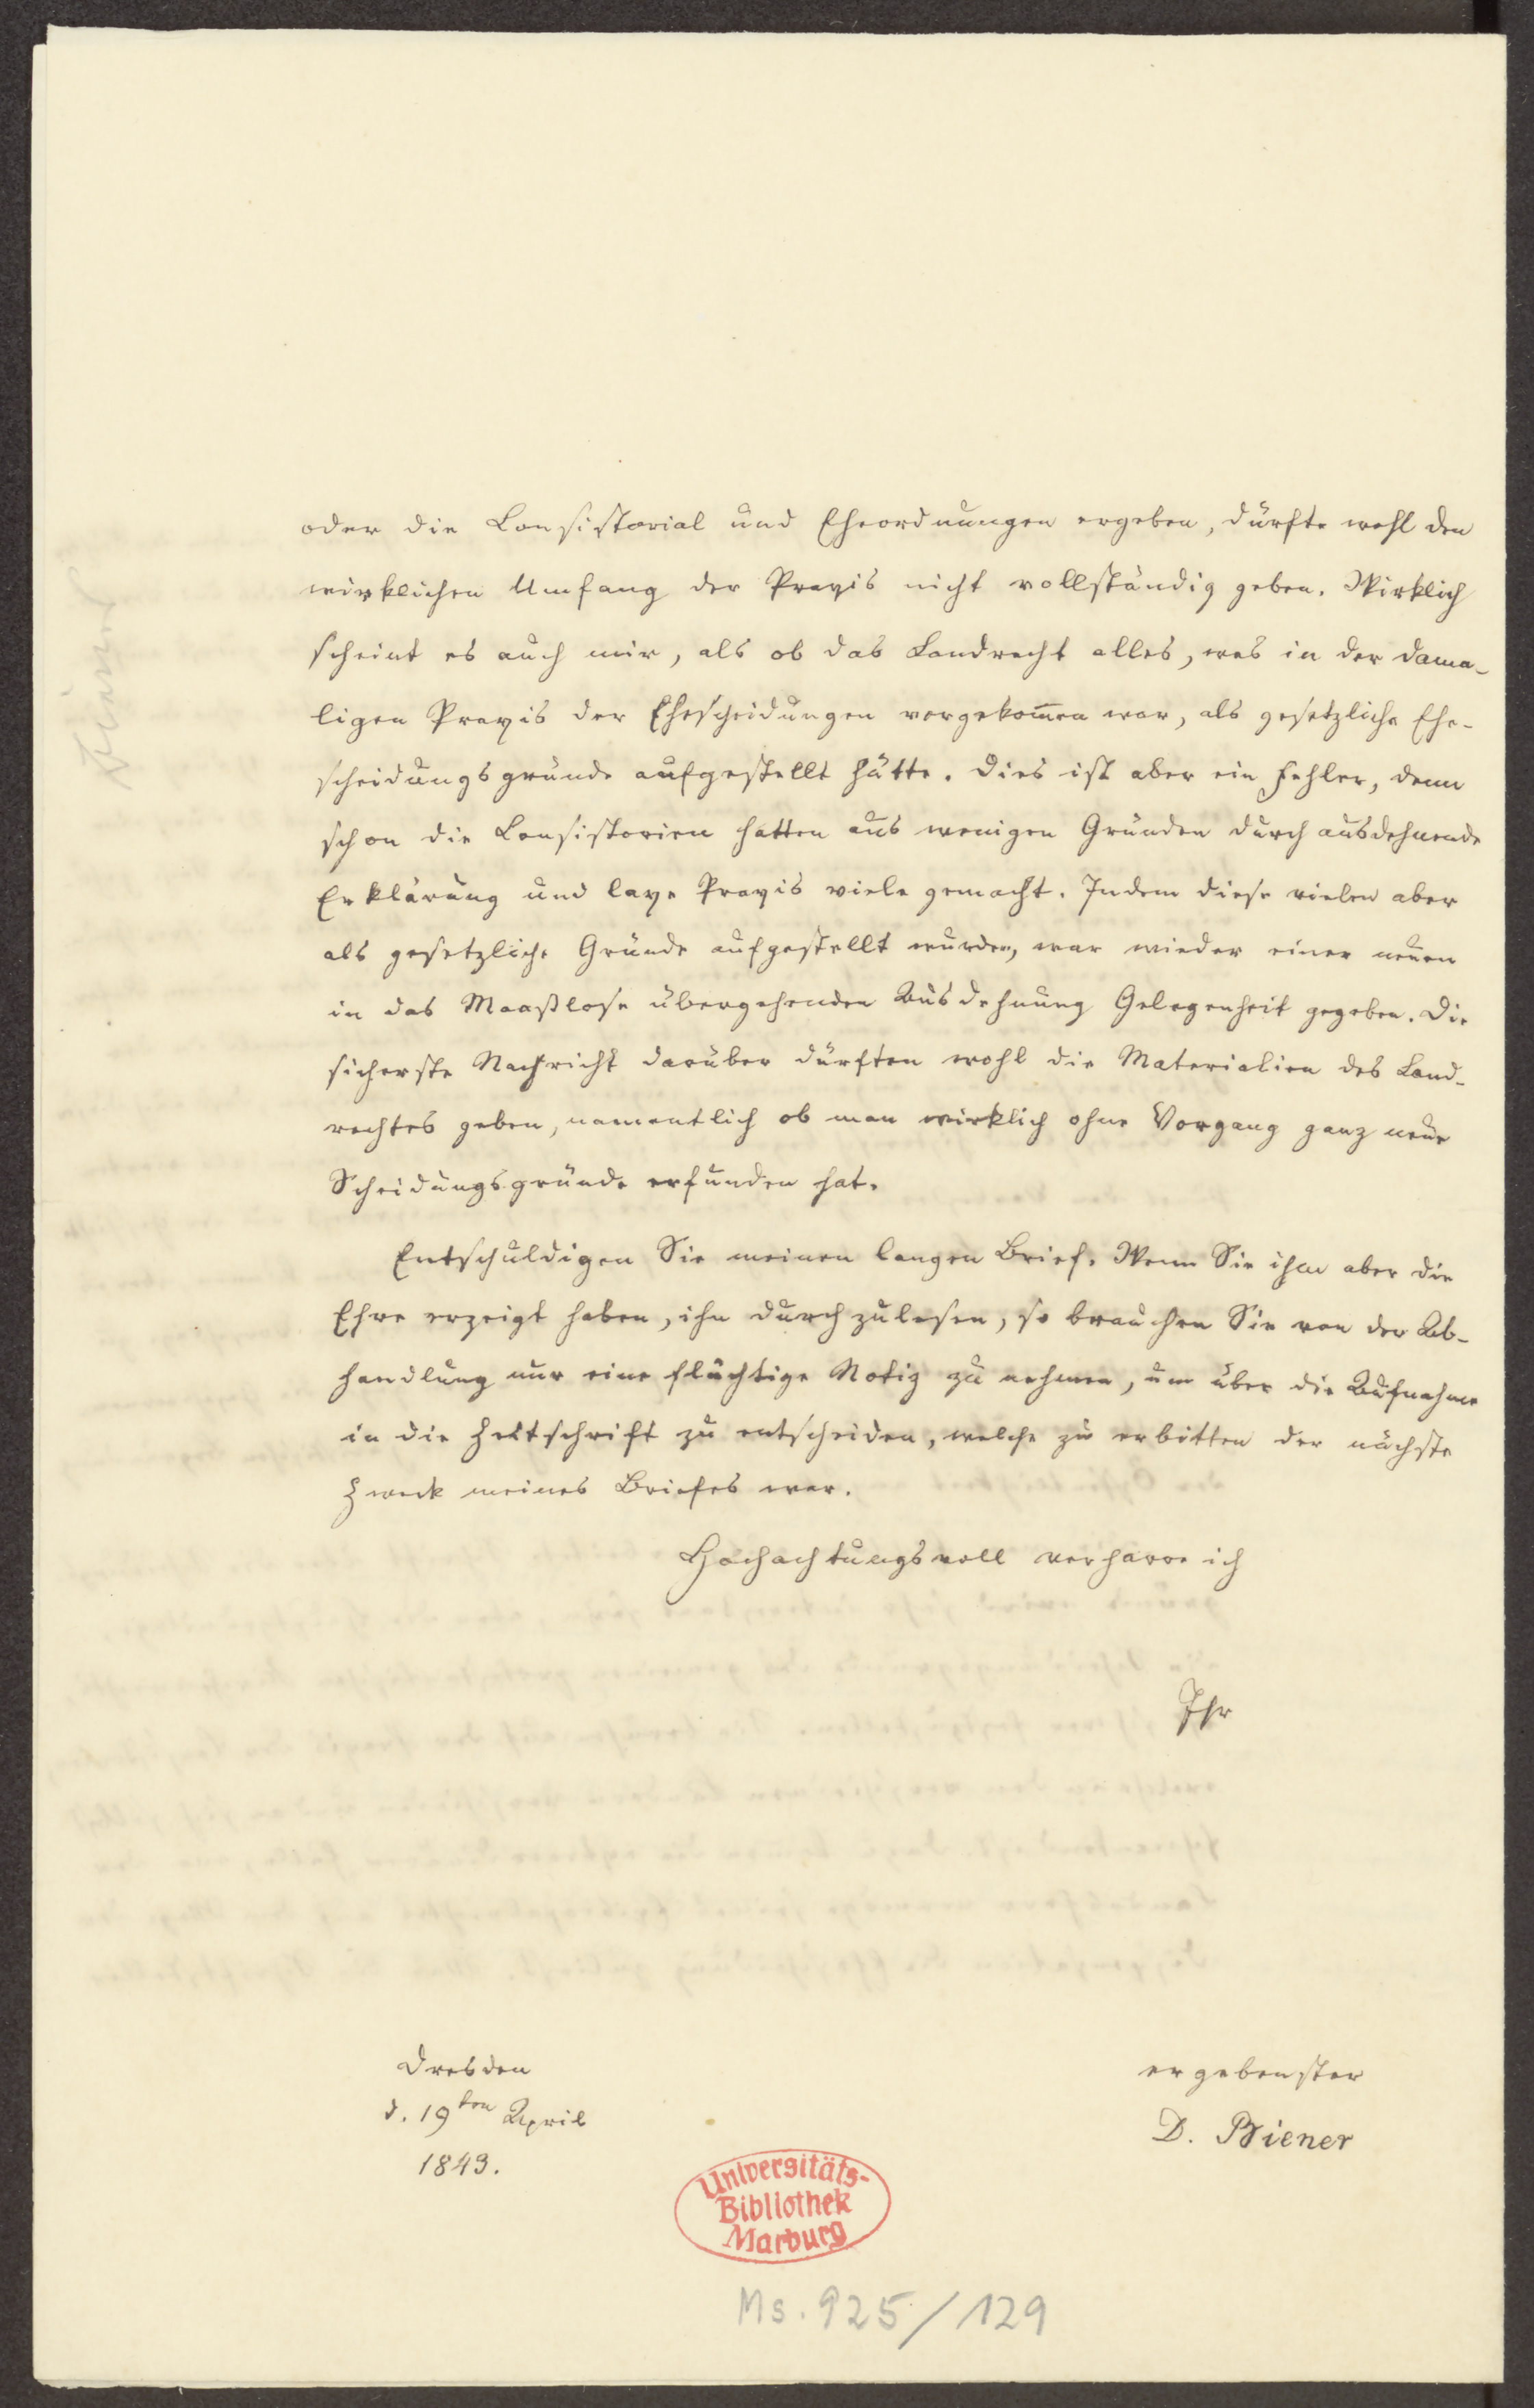 oder die Consistorial und Eheordnungen ergeben, dürfte wohl den
wirklichen Umfang der Praxis nicht vollständig geben. Wirklich
scheint es auch mir, als ob das Landrecht alles, was in der dama-
ligen Praxis der Ehescheidungen vorgekom̄en war, als gesetzliche Ehe-
scheidungsgründe aufgestellt hätte. Dies ist aber ein Fehler, denn
schon die Consistorien hatten aus wenigen Gründen durch ausdehnende
Erklärung und laxe Praxis viele gemacht. Indem diese vielen aber
als gesetzliche Gründe aufgestellt wurden, war wieder einer neuen
in das Maaßlose übergehenden Ausdehnung Gelegenheit gegeben. Die
sicherste Nachricht darüber dürften wohl die Materialien des Land-
rechtes geben, namentlich ob man wirklich ohne Vorgang ganz neue
Scheidungsgründe erfunden hat.
Entschuldigen Sie meinen langen Brief. Wenn Sie ihm aber die
Ehre erzeigt haben, ihn durchzulesen, so brauchen Sie von der Ab-
handlung nur eine flüchtige Notiz zu nehmen, um über die Aufnahme
in die Zeitschrift zu entscheiden, welche zu erbitten der nächste
Zweck meines Briefes war.
Hochachtungsvoll verharre ich
Ihr
ergebenster
D. Biener
Dresden
d. 19ten April
1843.
Universitäts-
Bibliothek
Marburg
Ms. 925/129